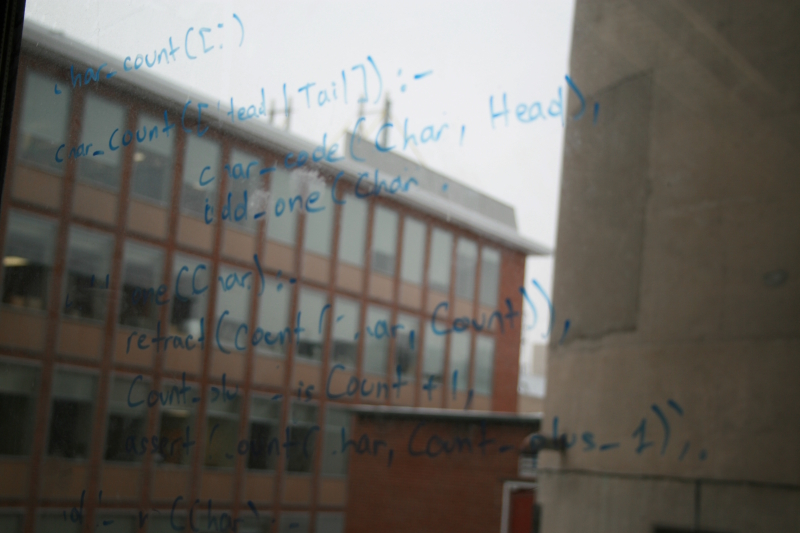 char_count([:)
char_count([Head | Tail]) :-
char_code(Char, Head),
add_one(Char
one(Char) :-
retract(count(Char, Count)),
Count_plus is Count + 1,
assert(count(Char, Count_plus_1)).
(Char) :-